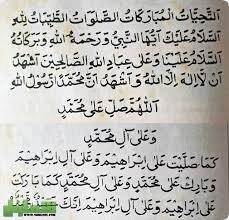 اَلتَّحِيَّاتُ الْمُبَارَكَاتُ الصَّلَوَاتُ الطَّيِّبَاتُ لِلّٰهِ
اَلسَّلَامُ عَلَيْكَ اَيُّهَا النَّبِيُّ وَرَحْمَةُ اللهِ وَبَرَكَاتُهُ
اَلسَّلَامُ عَلَيْنَا وَعَلَى عِبَادِ اللهِ الصَّالِحِيْنَ اَشْهَدُ
اَنْ لَااِلٰهَ اِلَّا اللهُ وَاَشْهَدُ اَنَّ مُحَمَّدًا رَسُوْلُ اللهِ
اَللّٰهُمَّ صَلِّ عَلَى مُحَمَّدٍ
وَعَلَى آلِ مُحَمَّدٍ
كَمَا صَلَّيْتَ عَلَى اِبْرَاهِيْمَ وَعَلَى آلِ اِبْرَاهِيْمَ
وَبَارِكْ عَلَى مُحَمَّدٍ وَعَلَى آلِ مُحَمَّدٍ كَمَا بَارَكْتَ
عَلَى اِبْرَاهِيْمَ وَعَلَى آلِ اِبْرَاهِيْمَ اِنَّكَ